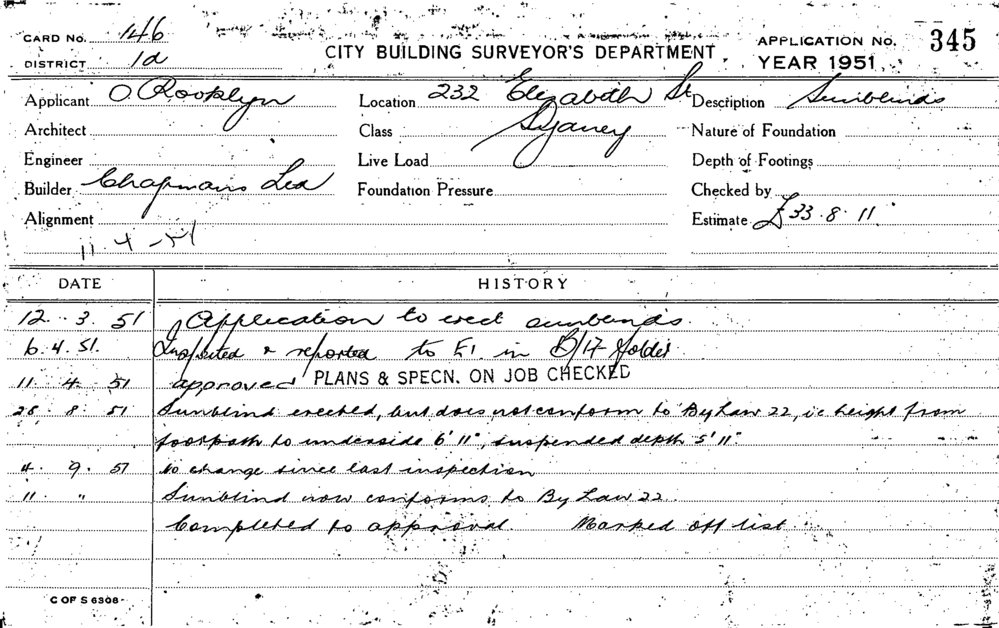 CARD No. 146
DISTRICT 1a
CITY BUILDING SURVEYOR'S DEPARTMENT
APPLICATION No. 345
YEAR 1951
Applicant O. Rooklyn
Location 232 Elizabeth St
Description Sunblinds
Architect
Class Sydney
Nature of Foundation
Engineer
Live Load
Depth of Footings
Builder Chapmans Ltd
Foundation Pressure
Checked by
Alignment
Estimate £33.8.11
11-4-51
DATE HISTORY
12.3.51 Application to erect sunblinds.
6.4.51. Inspected & reported to E1 in B/17 folder
11 4 51 approved PLANS & SPECN. ON JOB CHECKED
28.8.51 Sunblind erected, but does not conform to By Law 22, ie height from
footpath to underside 6' 11", suspended depth 5' 11"
4.9.51 No change since last inspection
11. " Sunblind now conforms to By Law 22.
Completed to approval Marked off list
C OF S 6308